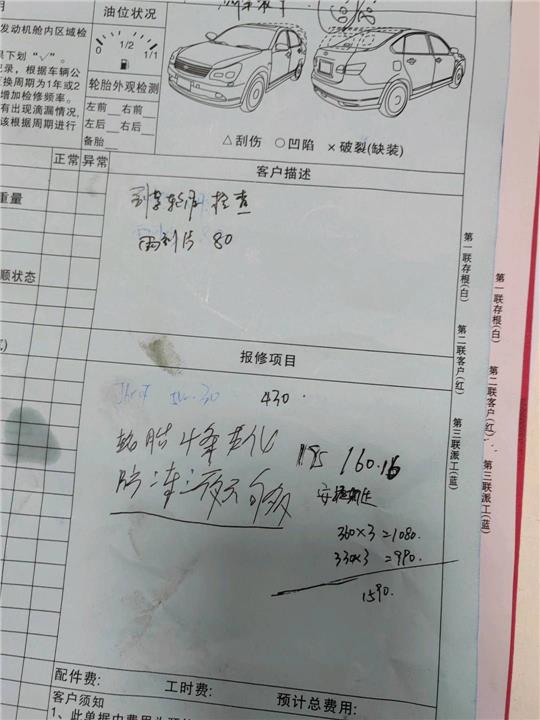 油位状况
发动机舱内区域检
1/2
1/1
果下划“√”。
记录，根据车辆公
换周期为1年或2
增加检修频率。
有出现滴漏情况,
该根据周期进行
轮胎外观检测
左前 右前
左后 右后
备胎
△刮伤 ○凹陷 ×破裂(缺装)
正常 异常
客户描述
重量
检查
雨刮片 80
顺状态
报修项目
430
轮胎4条老化
防冻液
195 160.16
360×3=1080.
330×3=990.
1590.
第一联存根(白)
第二联客户(红)
第三联派工(蓝)
第一联存根(白)
第二联客户(红)
第三联派工(蓝)
配件费: 工时费: 预计总费用:
客户须知